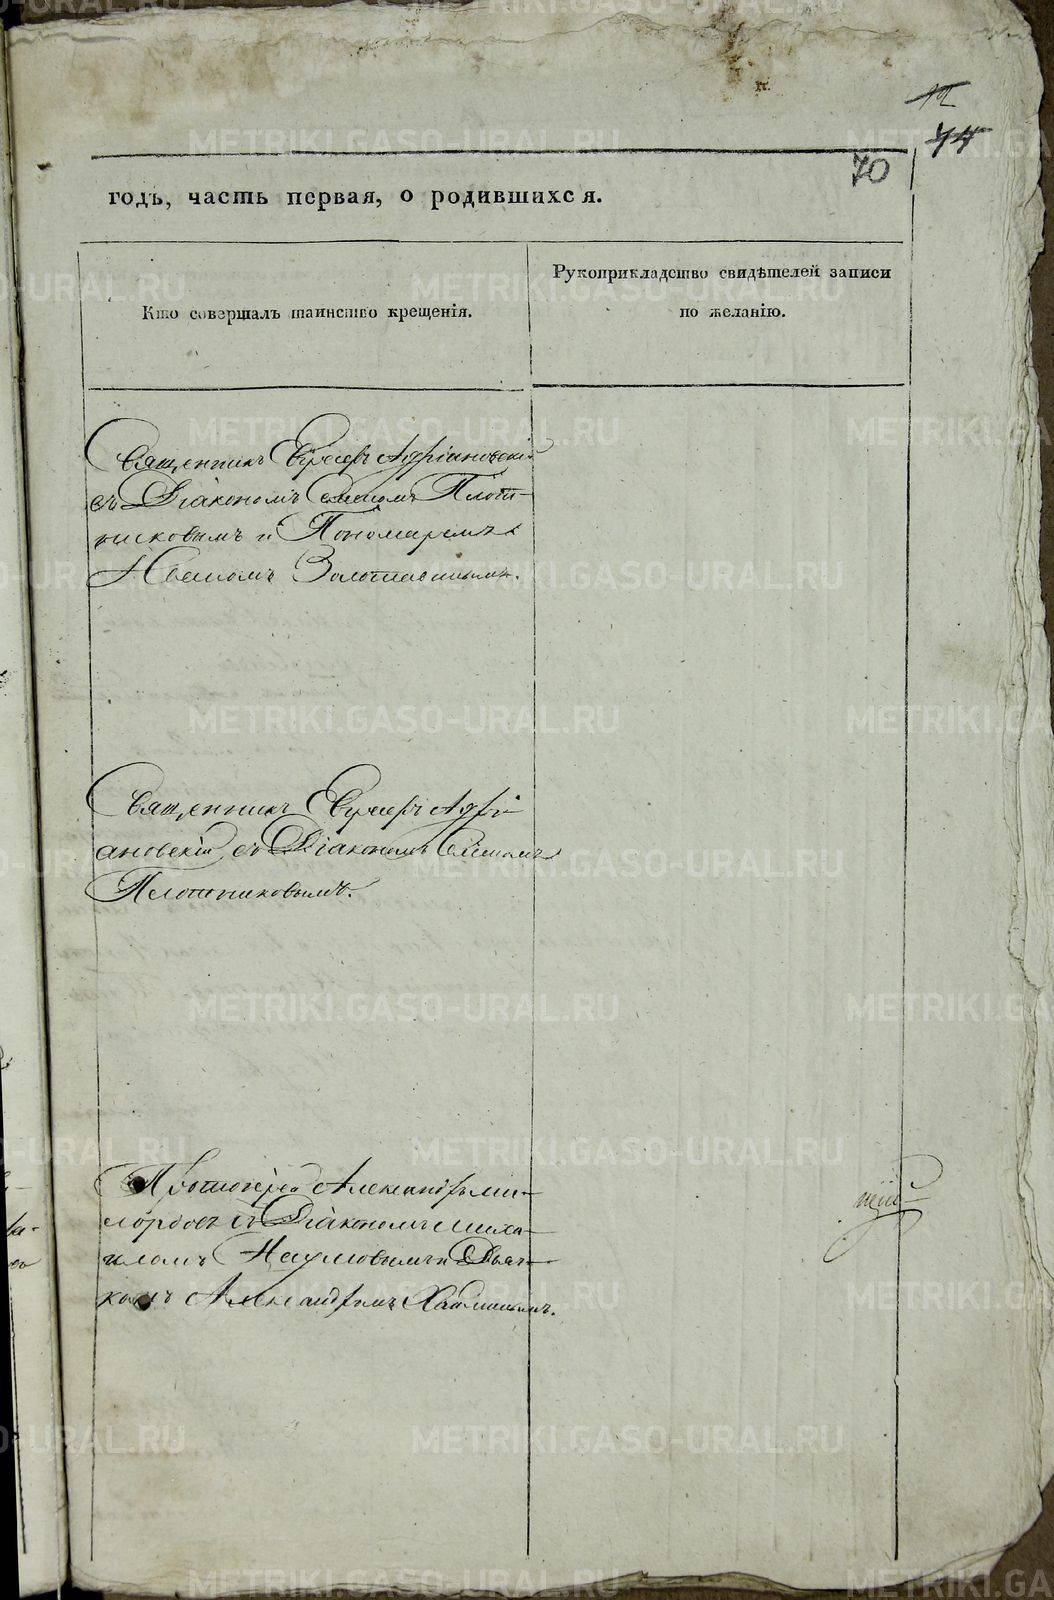 12
74
70
годъ, часть первая, о родившихся.
Кто совершалъ таинство крещенія.
Рукоприкладство свидѣтелей записи
по желанію.
Священникъ Адріановскій
съ Діакономъ Плот-
никовымъ и Пономаремъ
Иваномъ
Священникъ Адрі-
ановскій съ Діакономъ
Плотниковымъ.
Протоіерей Александръ Ми-
лордовъ съ Діакономъ Миха-
иломъ Наумовымъ и Дьяч-
комъ Александромъ
METRIKI.GASO-URAL.RU